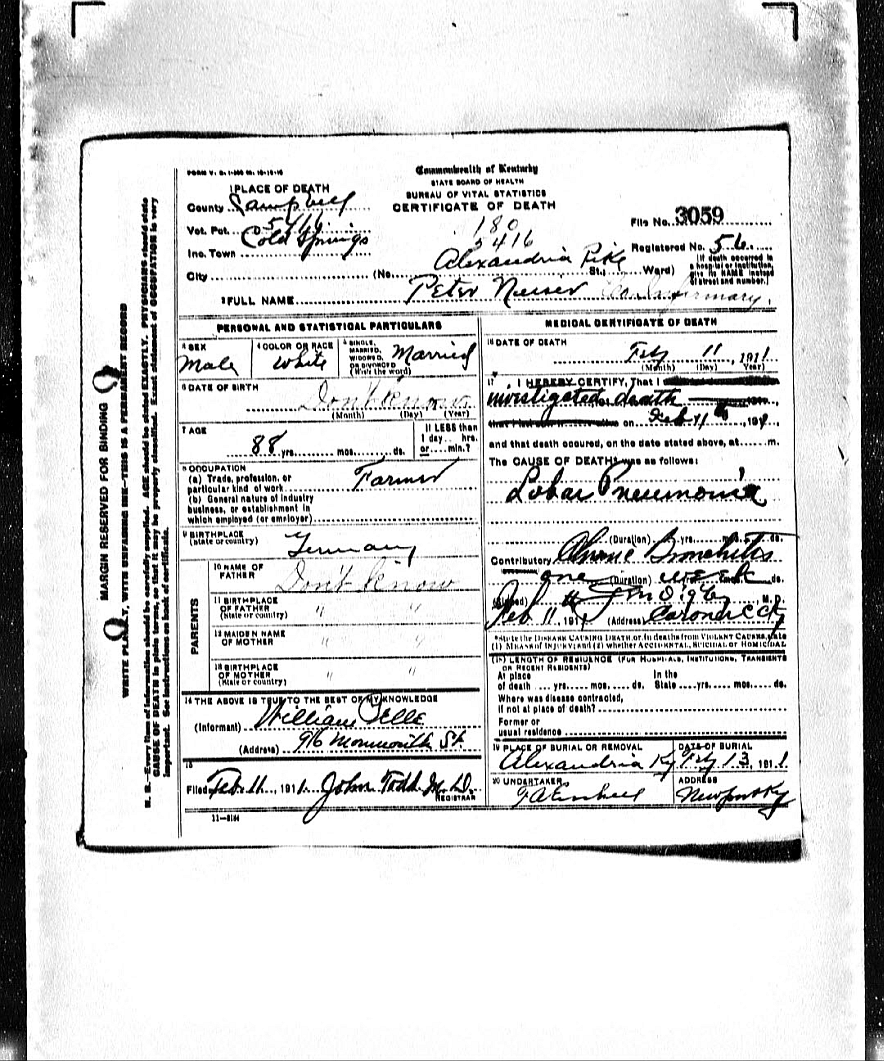 FORM V. S. 1-
Commonwealth of Kentucky
STATE BOARD OF HEALTH
BUREAU OF VITAL STATISTICS
CERTIFICATE OF DEATH
1 PLACE OF DEATH
County Campbell
Vot. Pct. 5416
Inc. Town Cold Springs
City
180
5416
File No. 3059
Registered No. 56
(No. Alexandria Pike St.; Ward)
(If death occurred in a hospital or institution, give its NAME instead of street and number.)
2 FULL NAME Peter Co. Infirmary.
PERSONAL AND STATISTICAL PARTICULARS
3 SEX Male
4 COLOR OR RACE White
5 SINGLE, MARRIED, WIDOWED, OR DIVORCED (Write the word) Married
6 DATE OF BIRTH Don't know
(Month) (Day) (Year)
7 AGE 88 yrs. mos. ds.
If LESS than 1 day hrs. or min.?
8 OCCUPATION
(a) Trade, profession, or particular kind of work Farmer
(b) General nature of industry business, or establishment in which employed (or employer)
9 BIRTHPLACE (State or country) Germany
PARENTS
10 NAME OF FATHER Don't know
11 BIRTHPLACE OF FATHER (State or country) " "
12 MAIDEN NAME OF MOTHER " "
13 BIRTHPLACE OF MOTHER (State or country) " "
14 THE ABOVE IS TRUE TO THE BEST OF MY KNOWLEDGE
(Informant) William
(Address) 916 Monmouth St.
15
Filed Feb. 11, 1911 John Todd M. D.
REGISTRAR
11—5184
MEDICAL CERTIFICATE OF DEATH
16 DATE OF DEATH Feb 11, 1911
(Month) (Day) Year)
17 I HEREBY CERTIFY, That I
investigated death
on Feb 11, 1911
and that death occured, on the date stated above, at m.
The CAUSE OF DEATH was as follows:
Lobar Pneumonia
(Duration) yrs. mos. ds.
Contributory Chronic Bronchitis
one (Duration) week ds.
M. D.
Feb 11, 1911 (Address)
*State the DISEASE CAUSING DEATH, or, in deaths from VIOLENT CAUSES, state
(1) MEANS OF INJURY; and (2) whether ACCIDENTAL, SUICIDAL or HOMICIDAL
18 LENGTH OF RESIDENCE (FOR HOSPITALS, INSTITUTIONS, TRANSIENTS
OR RECENT RESIDENTS)
At place of death yrs. mos. ds. In the State yrs. mos. ds.
Where was disease contracted,
if not at place of death?
Former or
usual residence
19 PLACE OF BURIAL OR REMOVAL Alexandria Ky
DATE OF BURIAL Feb 13, 1911
20 UNDERTAKER
ADDRESS Newport Ky
MARGIN RESERVED FOR BINDING
WRITE PLAINLY, WITH UNFADING INK—THIS IS A PERMANENT RECORD
N. B.—Every item of information should be carefully supplied. AGE should be stated EXACTLY. PHYSICIANS should state
CAUSE OF DEATH in plain terms, so that it may be properly classified. Exact statement of OCCUPATION is very
important. See instructions on back of certificate.